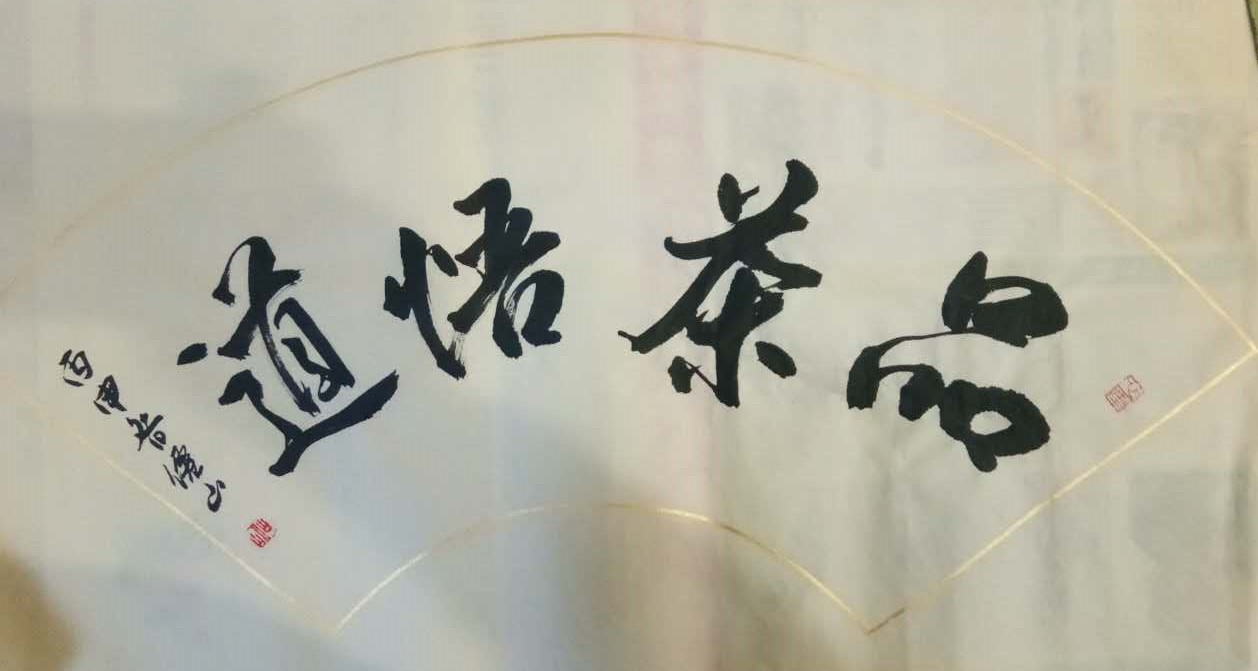 品茶悟道
丙申春